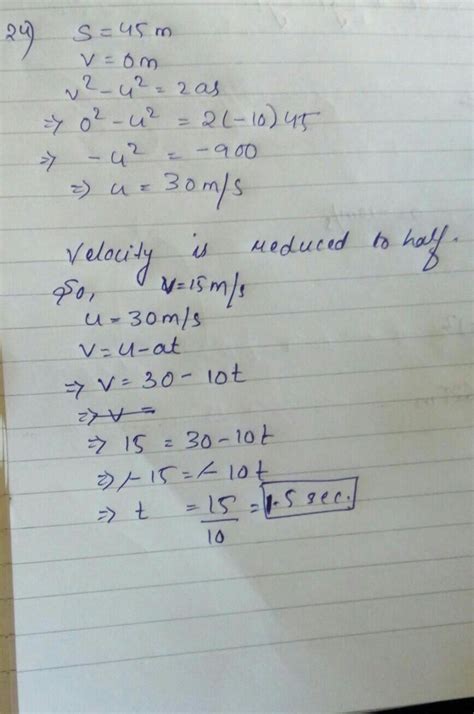 24) S = 45 m
V = 0 m
v² - u² = 2as
⇒ 0² - u² = 2(-10)45
⇒ - u² = -900
⇒ u = 30 m/s
Velocity is reduced to half.
So, V = 15 m/s
u = 30 m/s
V = u - at
⇒ V = 30 - 10t
⇒ V =
⇒ 15 = 30 - 10t
⇒ - 15 = - 10t
⇒ t = 15/10 = 1.5 sec.